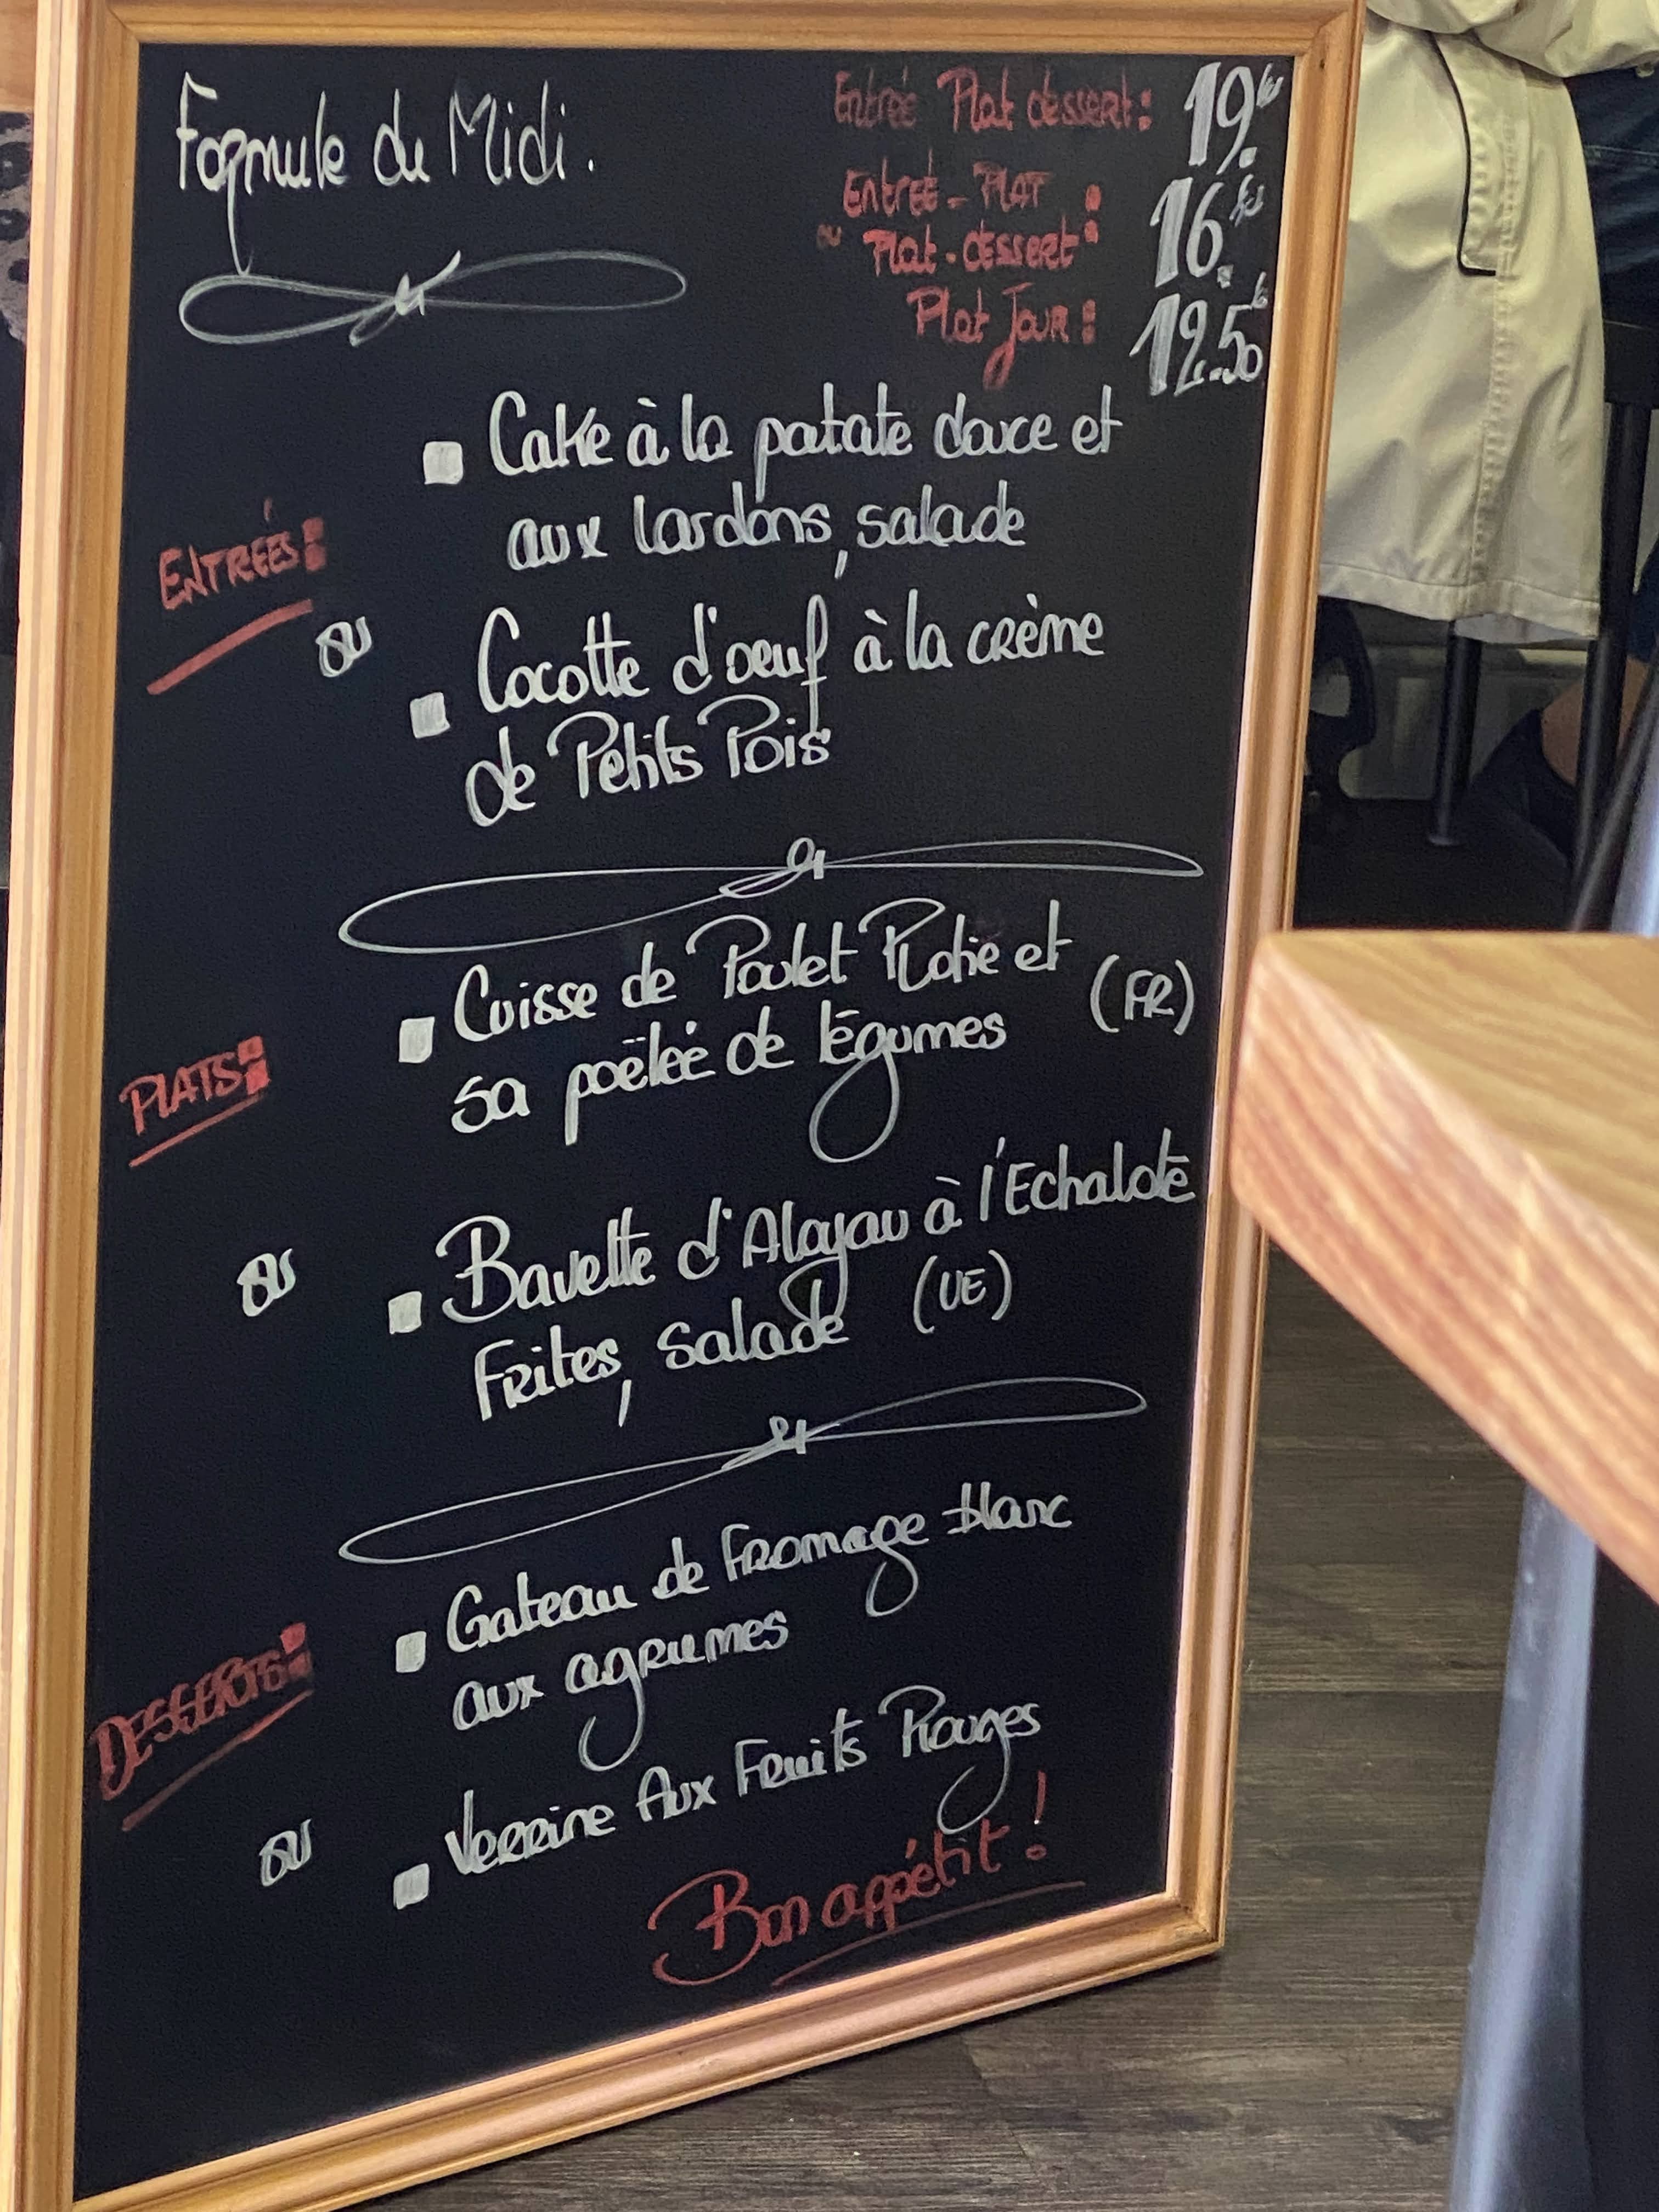 Formule du Midi.
Entrée Plat dessert: 19.
Entrée - Plat :
ou Plat - dessert 16.
Plat Jour: 12.50
Entrées:
Cake à la patate douce et
aux lardons, salade
ou
Cocotte d'oeuf à la crème
de Petits Pois
Plats:
Cuisse de Poulet Rotie et
sa poëlée de légumes (FR)
ou
Bavette d'Aloyau à l'Echalote
Frites, salade (UE)
Desserts:
Gateau de Fromage blanc
aux agrumes
ou
Verrine Aux Fruits Rouges
Bon appétit !